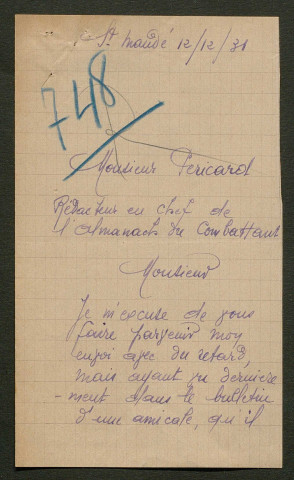 St Mandé 12/12/31
748
Monsieur Péricard
Rédacteur en chef de
l'almanach du Combattant
Monsieur
Je m'excuse de vous
faire parvenir mon
envoi avec du retard,
mais ayant vu dernière
-ment dans le bulletin
d'une amicale, qu'il